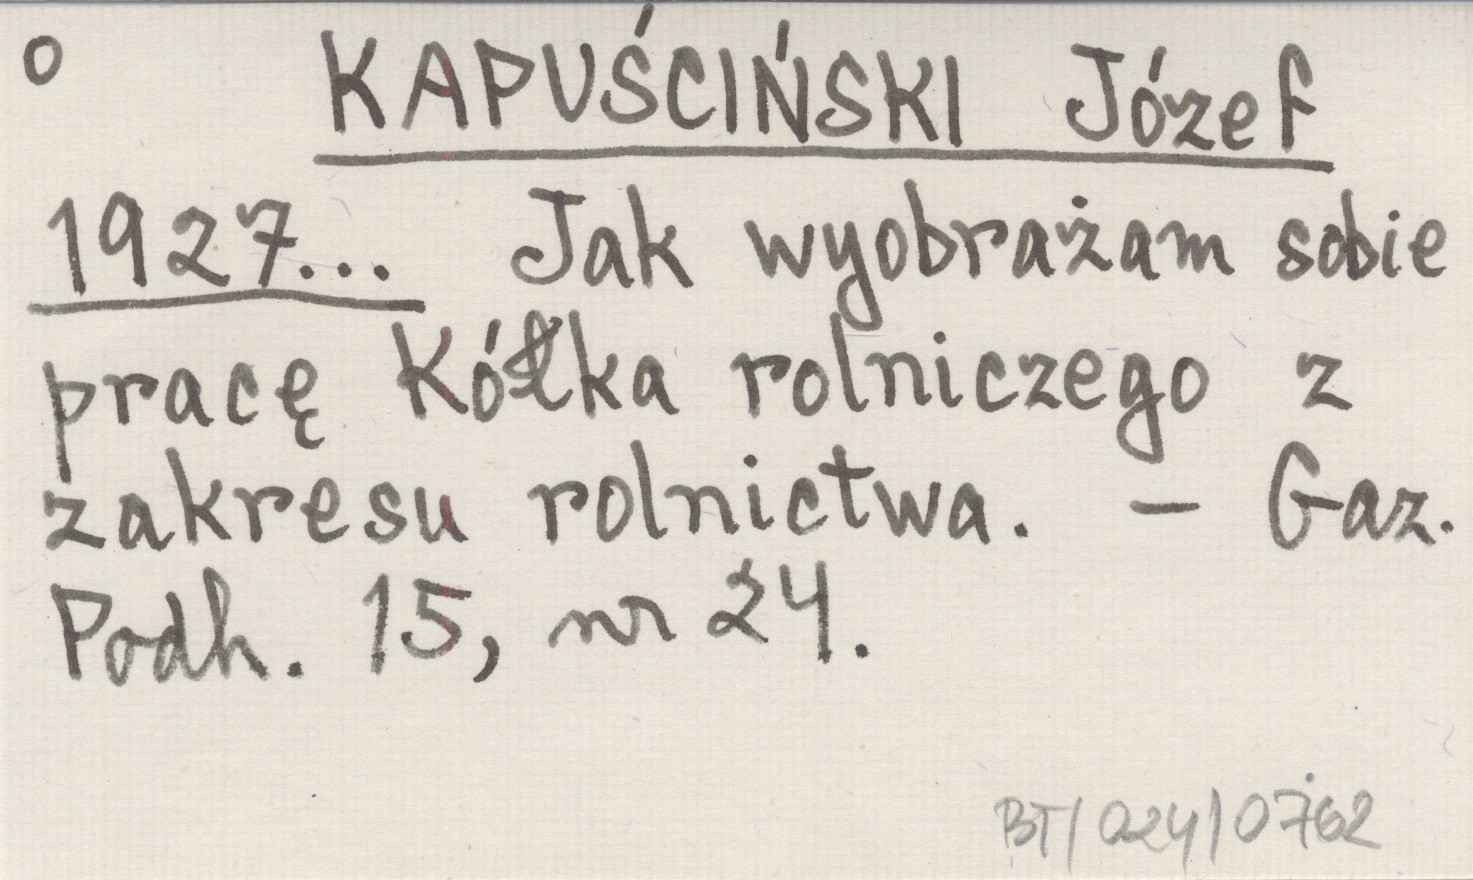 o KAPUŚCIŃSKI Józef
1927... Jak wyobrażam sobie
pracę Kółka rolniczego z
zakresu rolnictwa. – Gaz.
Podh. 15, nr 24.
BT/024/0762